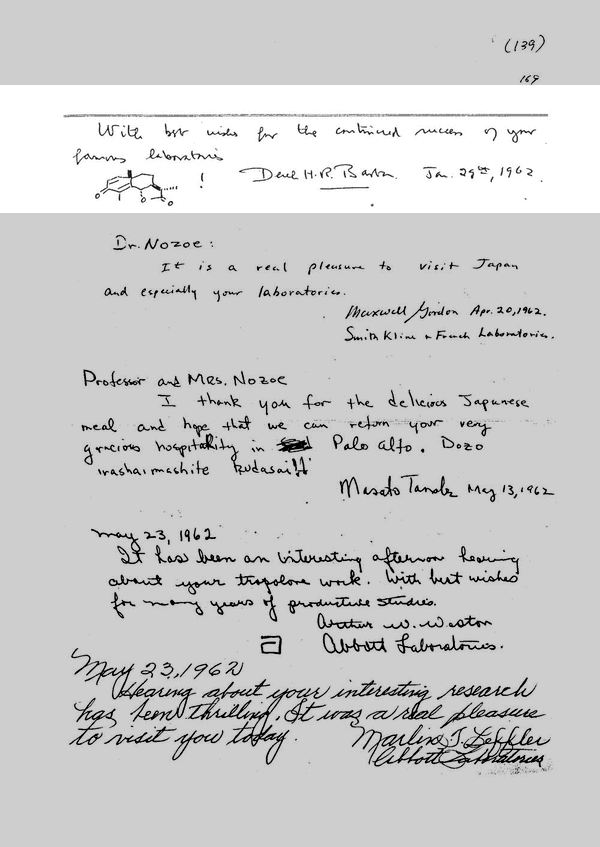 (139)
169
With best wishes for the continued success of your
famous laboratories
! Derek H.R. Barton. Jan. 29th, 1962.
Dr. Nozoe:
It is a real pleasure to visit Japan
and especially your laboratories.
Maxwell Gordon Apr. 20, 1962.
Smith Kline & French Laboratories.
Professor and Mrs. Nozoe
I thank you for the delicious Japanese
meal and hope that we can return your very
gracious hospitality in Palo Alto. Dozo
irashaimashite kudasai!!
Masato Tanabe May 13, 1962
May 23, 1962
It has been an interesting afternoon hearing
about your tropolone work. With best wishes
for many years of productive studies.
Arthur W. Weston
Abbott Laboratories.
May 23, 1962
Hearing about your interesting research
has been thrilling. It was a real pleasure
to visit you today.
Marlin T. Leffler
Abbott Laboratories